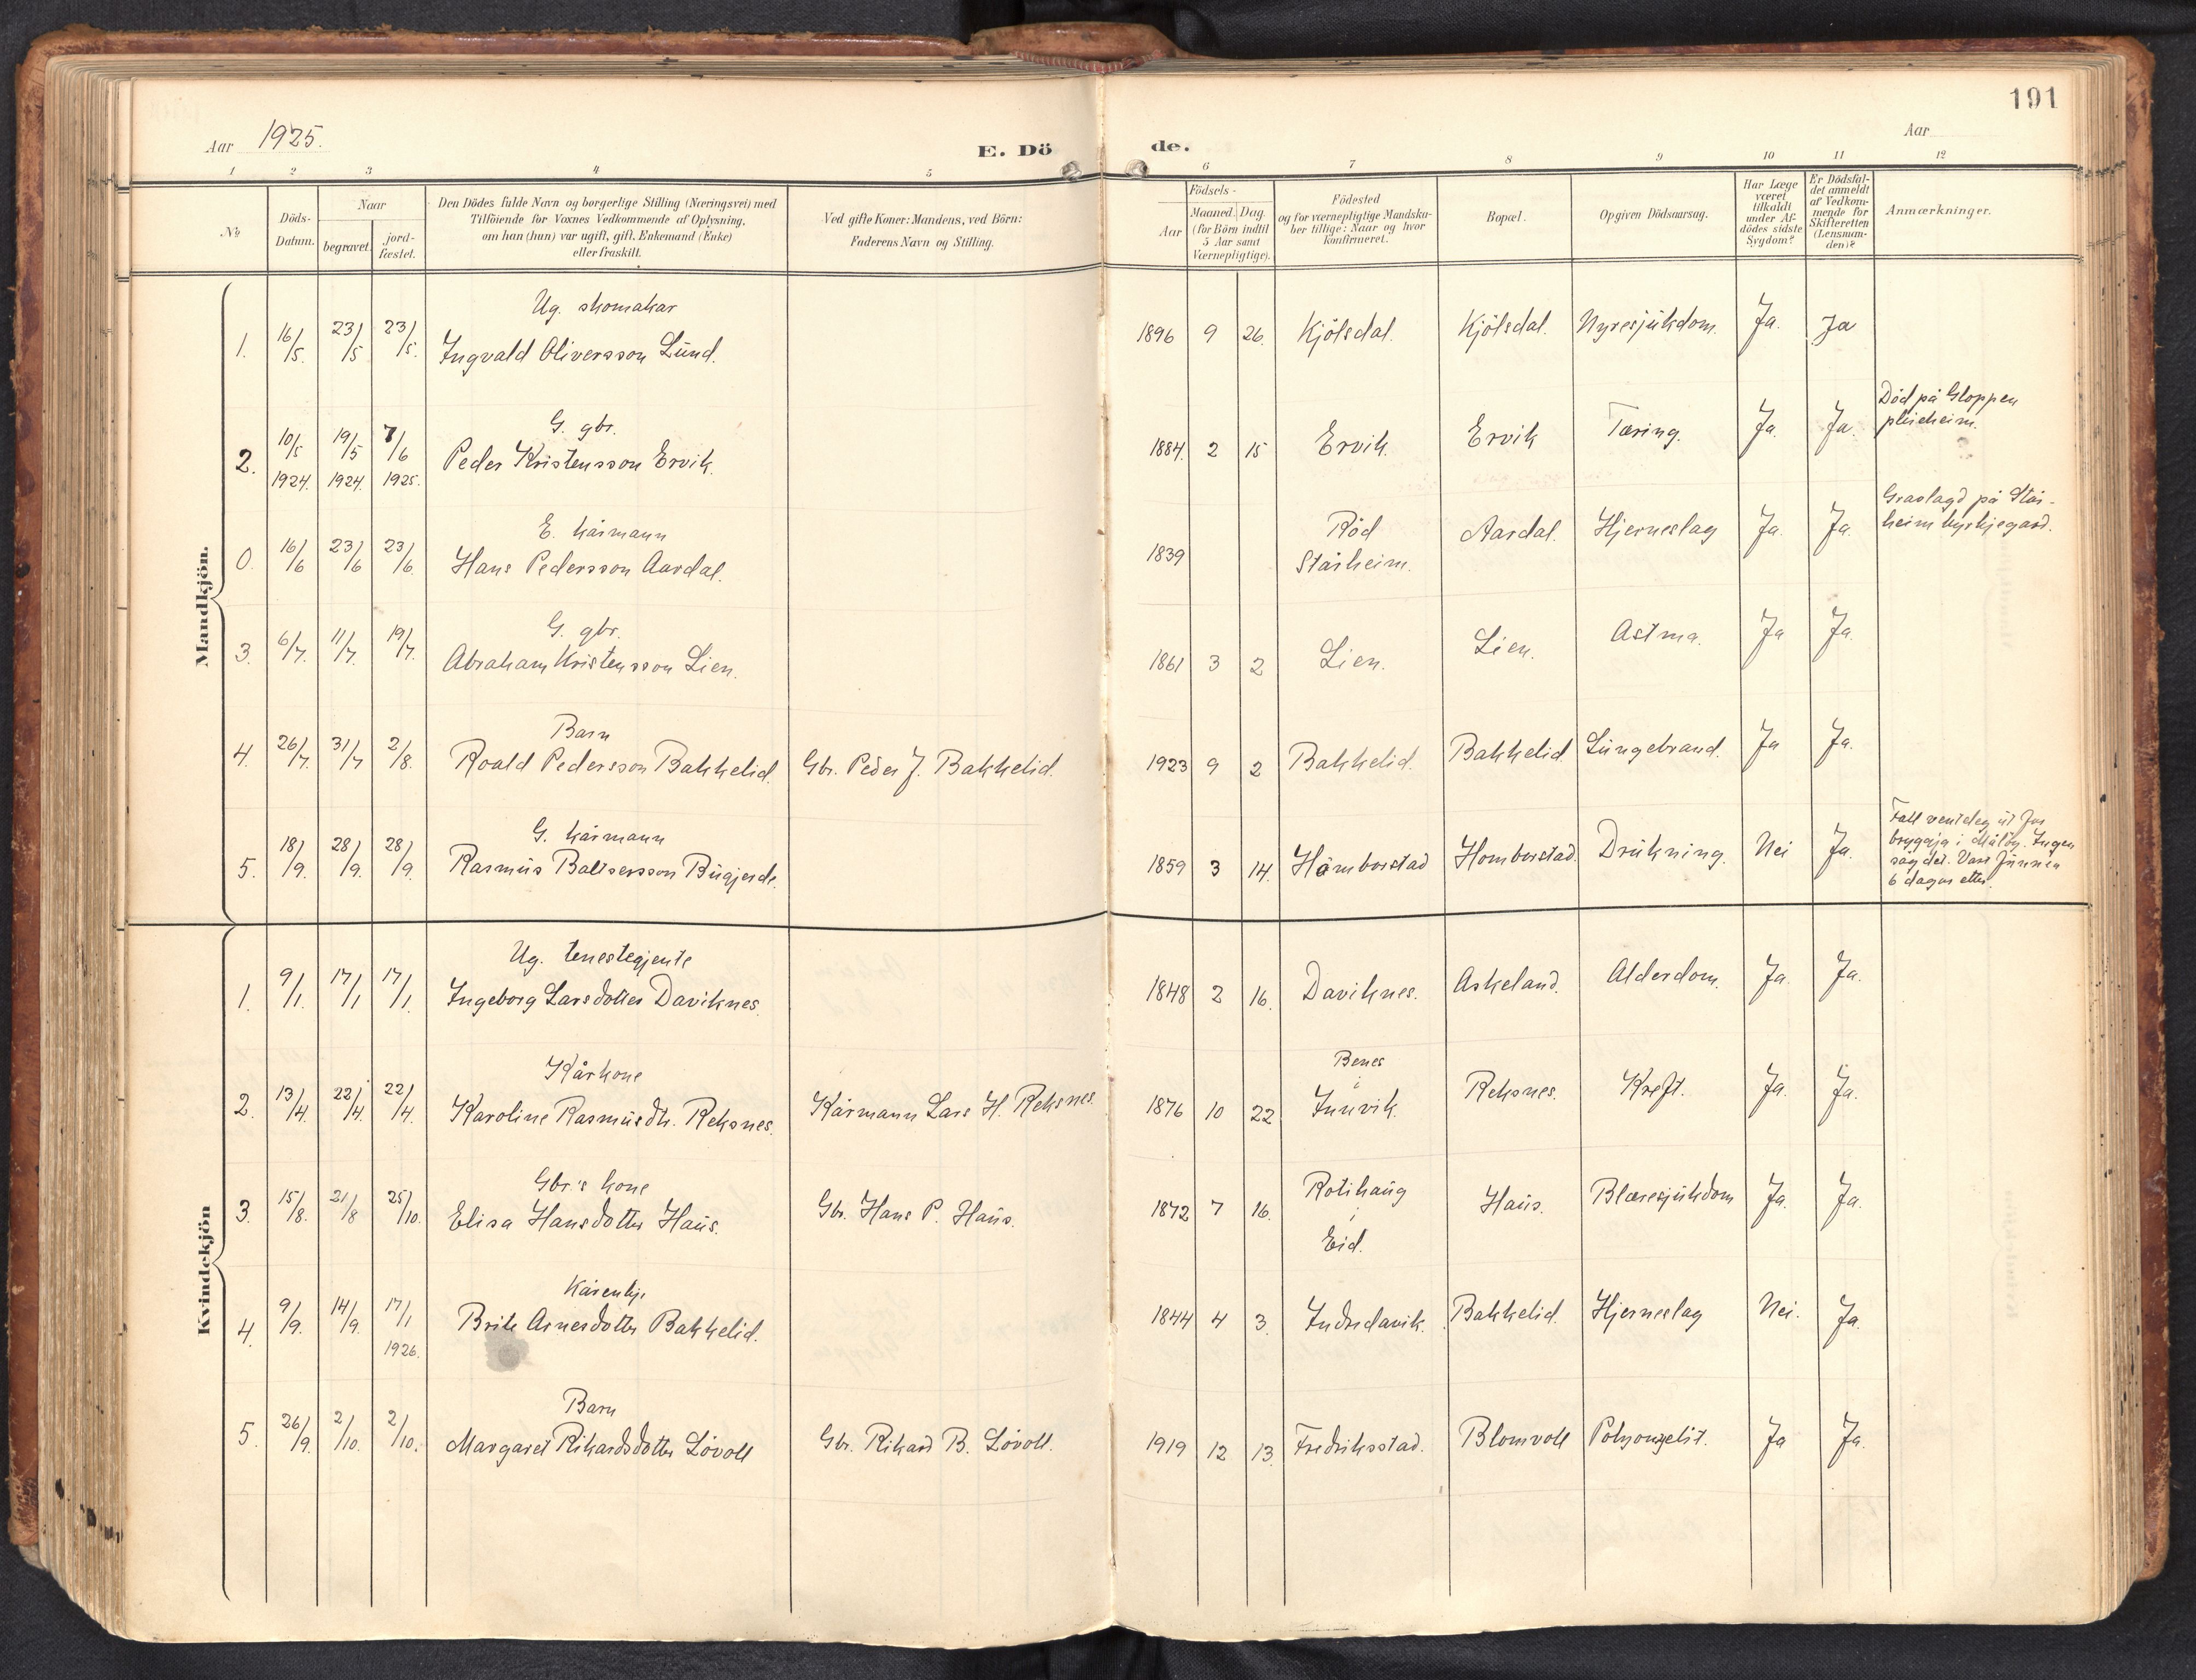 191
Aar 1925.
E. Dö
de.
Aar
1 2 3 4 5 6 7 8 9 10 11 12
No
Döds-
Datum.
Naar
begravet.
jord-
fæstet.
Den Dödes fulde Navn og borgerlige Stilling (Næringsvei) med
Tilföiende for Voxnes Vedkommende af Oplysning,
om han (hun) var ugift, gift, Enkemand (Enke)
eller fraskilt.
Ved gifte Koner: Mandens, ved Börn:
Faderens Navn og Stilling.
Födsels-
Aar
Maaned. Dag.
(for Börn indtil
5 Aar samt
Værnepligtige).
Födested
og for værnepligtige Mandska-
ber tillige: Naar og hvor
konfirmeret.
Bopæl.
Opgiven Dödsaarsag.
Har Læge
været
tilkaldt
under Af-
dödes sidste
Sygdom?
Er Dödsfal-
det anmeldt
af Vedkom-
mende for
Skifteretten
(Lensman-
den)?
Anmærkninger.
Mandkjön.
Ug. skomakar
1. 16/5. 23/5 23/5. Ingvald Oliversson Lund. 1896 9 26. Kjölsdal. Kjölsdal. Nyresjukdom. Ja. Ja
G. gbr.
2. 10/5 19/5 7/6 Peder Kristensson Ervik. 1884. 2 15 Ervik. Ervik Tæring. Ja. Ja.
1924. 1924. 1925.
Död på Gloppen
pleieheim.
E. kårmann
0. 16/6 23/6 23/6. Hans Pedersson Aardal. 1839 Röd
Stårheim. Aardal. Hjerneslag Ja. Ja.
Graslagd på Står-
heim kyrkjegard.
G. gbr.
3. 6/7. 11/7. 19/7. Abraham Kristensson Lien. 1861 3 2 Lien. Lien. Astma. Ja Ja.
Barn
4. 26/7. 31/7 2/8. Roald Pedersson Bakkelid. Gbr. Peder J. Bakkelid. 1923 9 2 Bakkelid. Bakkelid Lungebrand. Ja Ja.
G. kårmann
5. 18/9. 28/9. 28/9. Rasmus Baltsersson Bugjerde. 1859 3 14. Homborstad Homborstad. Drukning. Nei Ja.
Fall ut
bryggja i Målöy. Ingen
såg det. Vart funnen
6 dagar etter.
Kvindekjön
Ug. tenestegjente
1. 9/1. 17/1 17/1. Ingeborg Larsdotter Daviknes. 1848 2 16. Daviknes. Askeland. Alderdom. Ja. Ja.
Kårkone
2. 13/4. 22/4 22/4. Karoline Rasmusdtr. Reksnes. Kårmann Lars H. Reksnes. 1876 10 22 Benes
i
Innvik. Reksnes. Kreft. Ja. Ja.
Gbr's kone
3. 15/8. 21/8 25/10. Elisa Hansdotter Haus. Gbr. Hans P. Haus. 1872 7 16. Rotihaug
i
Eid. Haus. Blæresjukdom Ja. Ja.
Kårenkje
4. 9/9. 14/9. 17/1 Brite Arnesdotter Bakkelid. 1844 4 3. Indredavik. Bakkelid. Hjerneslag Nei. Ja.
1926.
Barn
5. 26/9. 2/10. 2/10. Margaret Rikardsdotter Lövoll Gbr. Rikard B. Lövoll. 1919 12 13. Fredriksstad. Blomvoll Ja Ja.